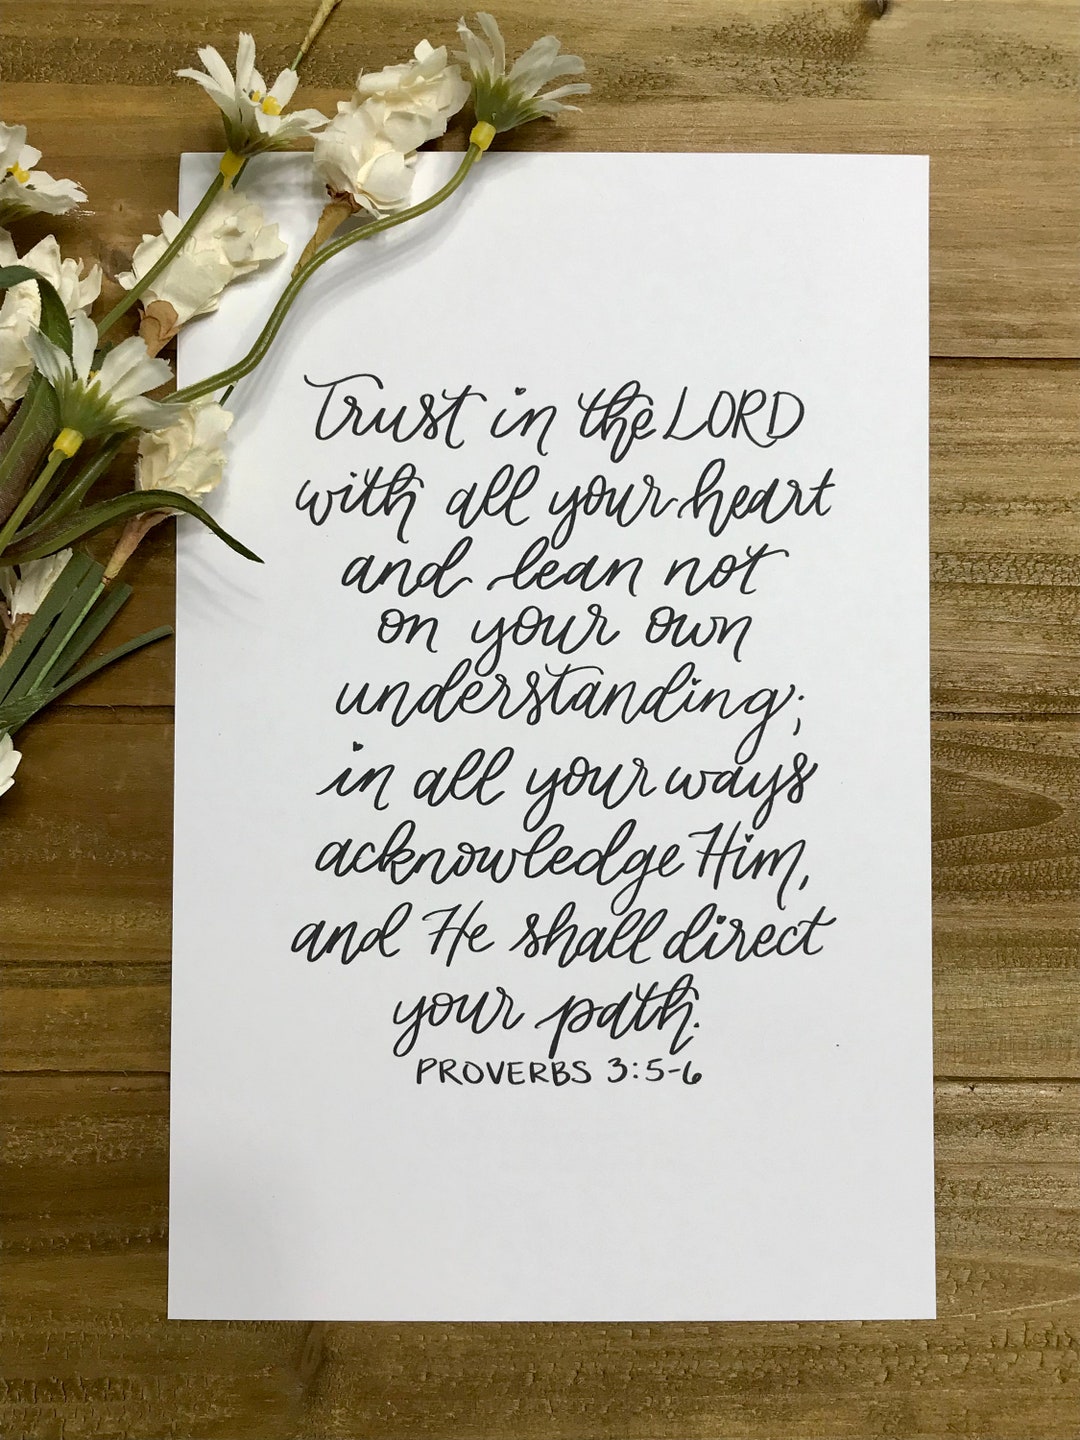 Trust in the LORD
with all your heart
and lean not
on your own
understanding;
in all your ways
acknowledge Him,
and He shall direct
your path.
PROVERBS 3:5-6